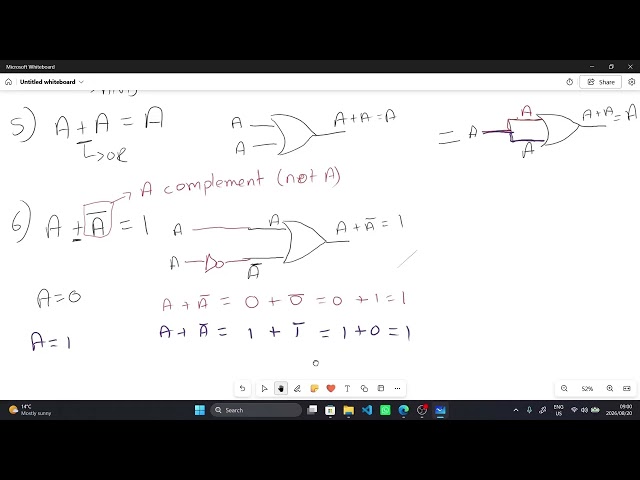 Microsoft Whiteboard
Untitled whiteboard
Share
5) A + A = A
OR
A
A
A + A = A
= A
A
A
A + A = A
A complement (not A)
6) A + A̅ = 1
A
A
A
A̅
A + A̅ = 1
A = 0
A + A̅ = 0 + 0̅ = 0 + 1 = 1
A = 1
A + A̅ = 1 + 1̅ = 1 + 0 = 1
52%
14°C
Mostly sunny
Search
ENG
US
09:00
2026/08/20